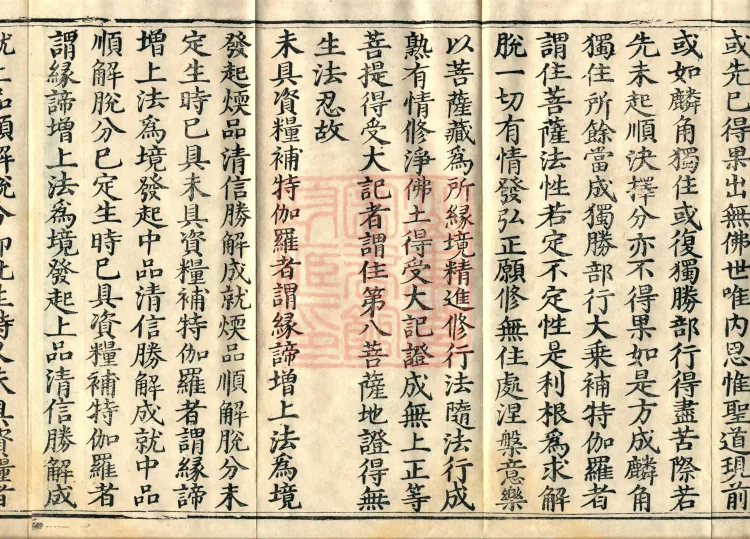 或先已得果出無佛世唯內思惟聖道現前
或如麟角獨住或復獨勝部行得盡苦際若
先未起順決擇分亦不得果如是方成麟角
獨住所餘當成獨勝部行大乘補特伽羅者
謂住菩薩法性若定不定性是利根為求解
脫一切有情發弘正願修無住處涅槃意樂
以菩薩藏為所緣境精進修行法隨法行成
熟有情修淨佛土得受大記證成無上正等
菩提得受大記者謂住第八菩薩地證得無
生法忍故
未具資糧補特伽羅者謂緣諦增上法為境
發起煗品清信勝解成就煗品順解脫分未
定生時已具未具資糧補特伽羅者謂緣諦
增上法為境發起中品清信勝解成就中品
順解脫分已定生時已具資糧補特伽羅者
謂緣諦增上法為境發起上品清信勝解成
就上品順解脫分即此生時又未具資糧者